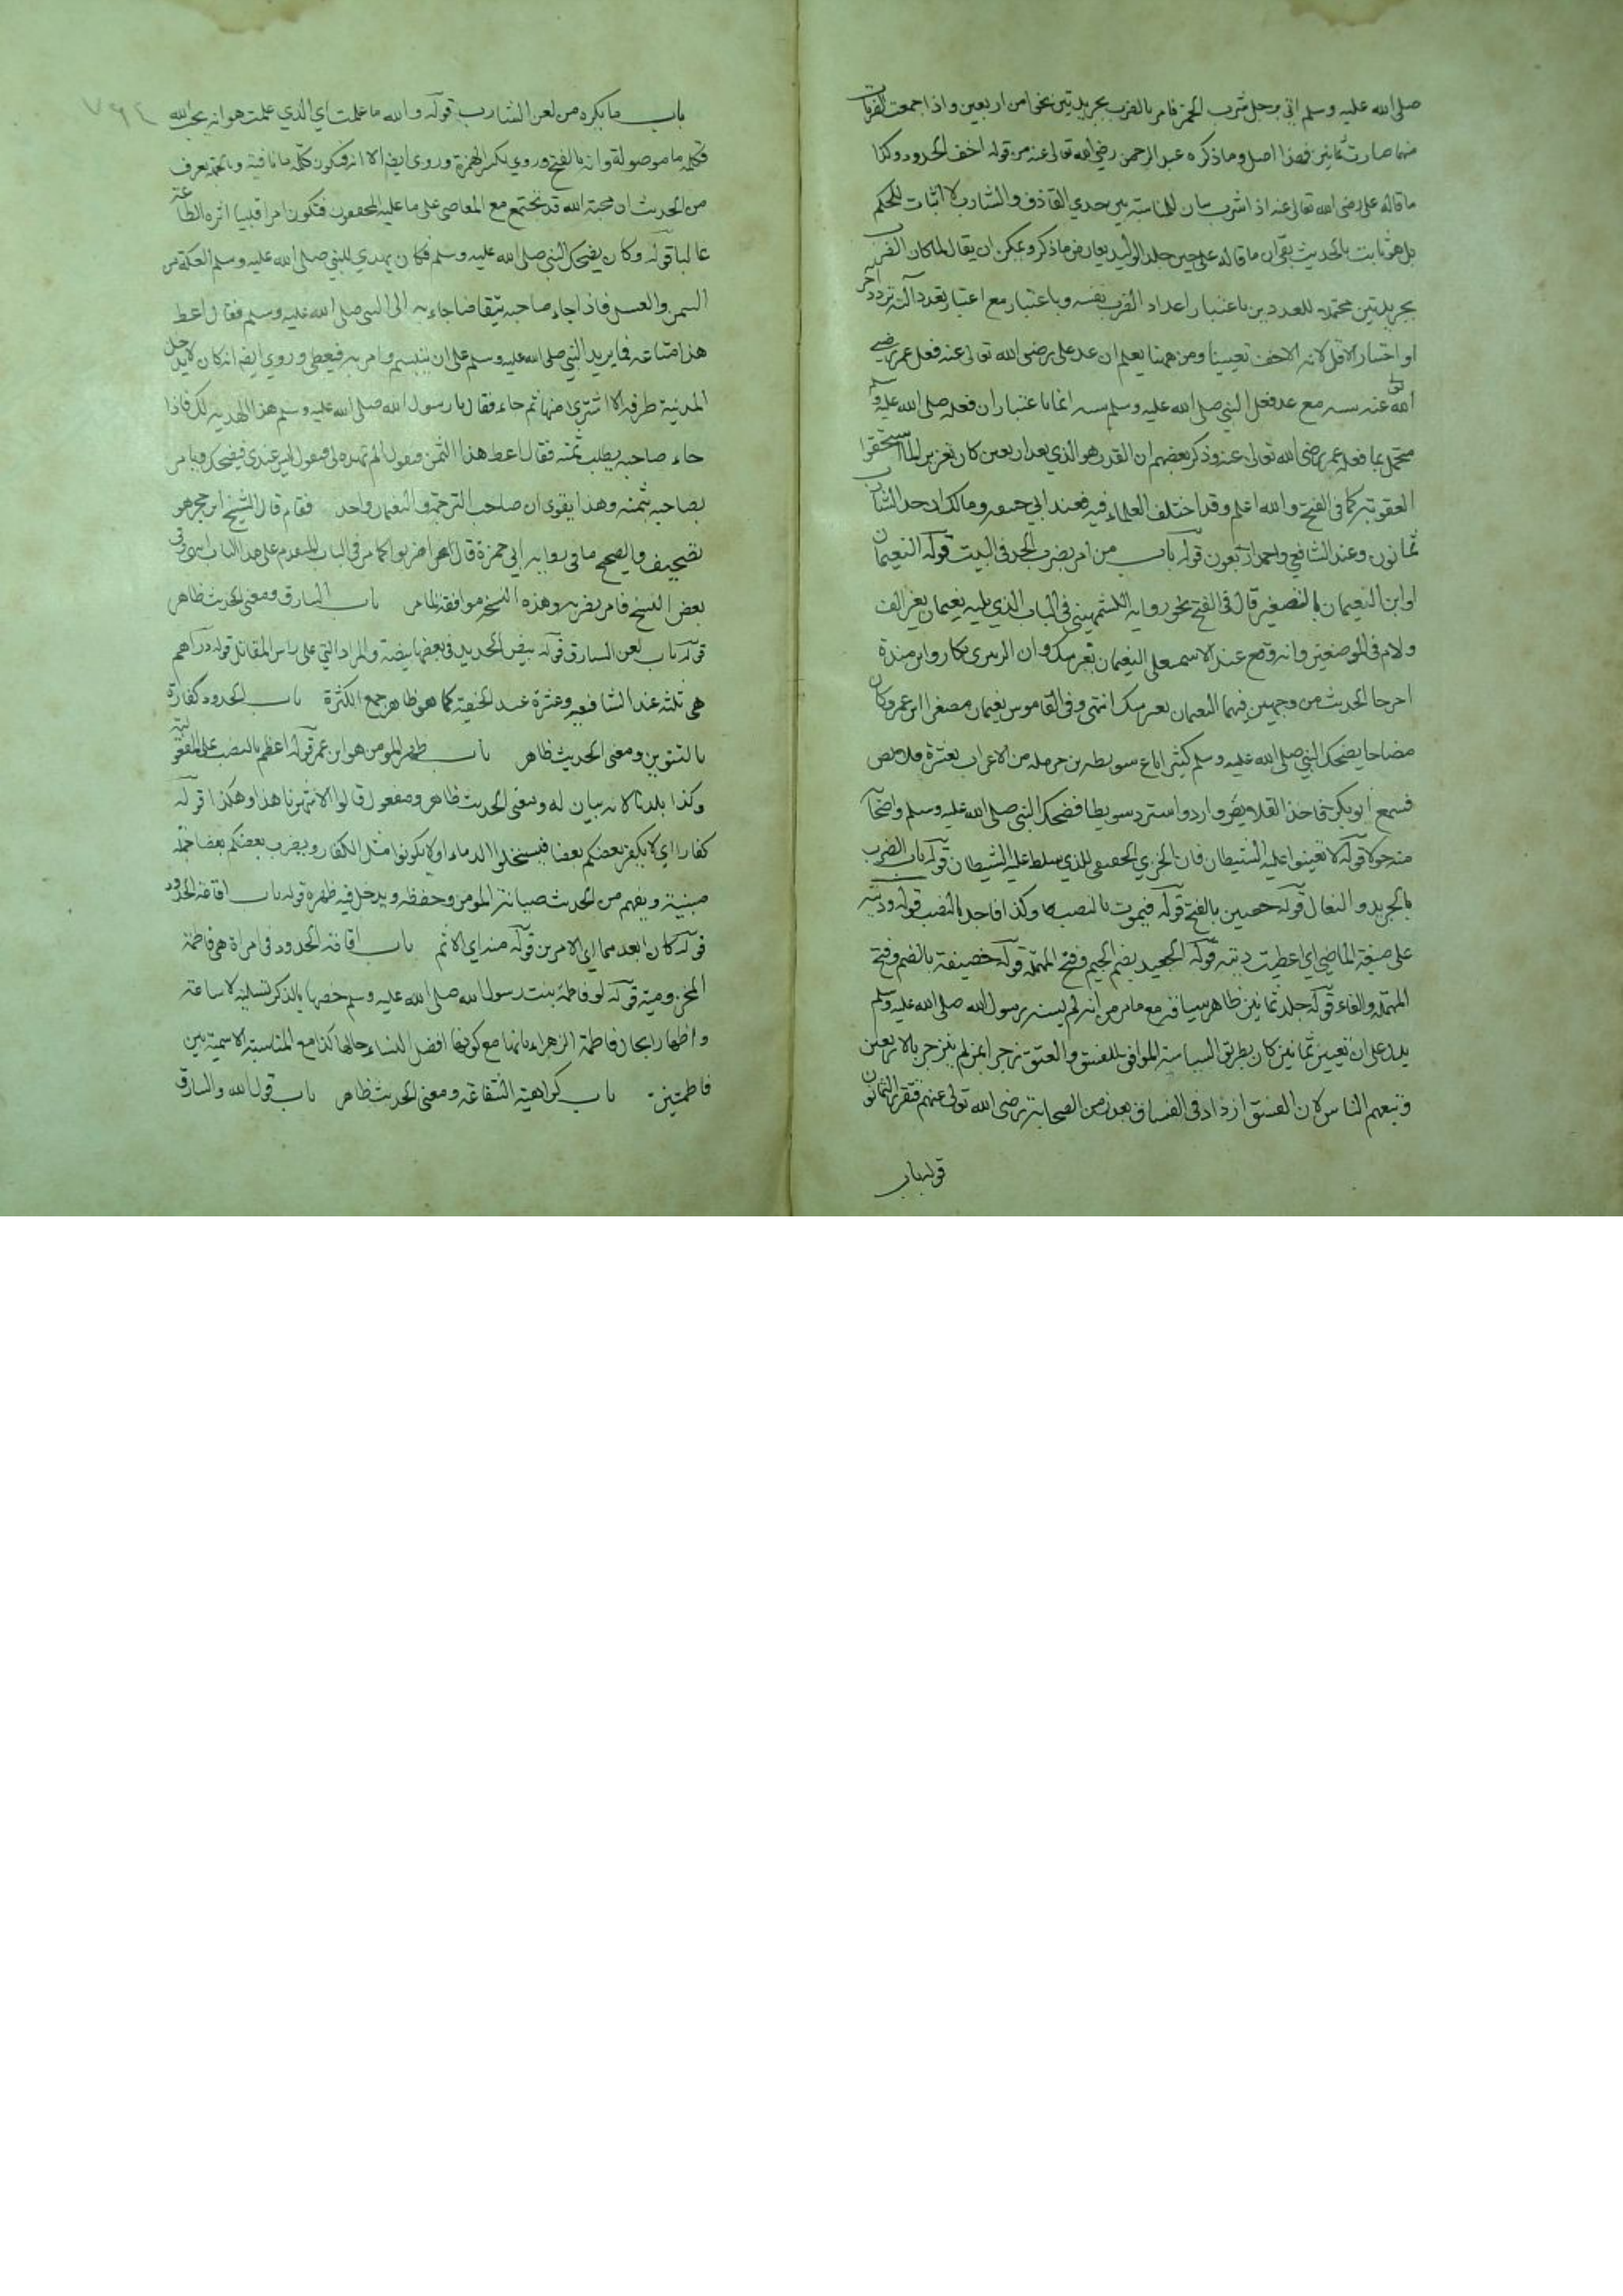 صلى الله عليه وسلم اتي برجل شرب الخمر فامر بالضرب بجريدتين نحوا من اربعين واذا جمعت الضربات
منهما صارت ثمانين فهذا اصل وما ذكره عبد الرحمن رضي الله تعالى عنه من قوله اخف الحدود وكذا
ما قاله علي رضي الله تعالى عنه اذا شرب بيان للمناسبة بين حدي القاذف والشارب لا اثبات للحكم
بل هو ثابت بالحديث بقي ان ما قاله علي حين جلد الوليد يعارض ما ذكر ويمكن ان يقال لما كان الضرب
بجريدتين محتملا للعددين باعتبار اعداد الضرب نفسه وباعتبار مع اعتبار تعدد آلته تردد آخر
او اختيار الاقل لانه الاخف تعيينا ومن ههنا يعلم ان عد علي رضي الله تعالى عنه فعل عمر رضي
الله تعالى عنه سنة مع عد فعل النبي صلى الله عليه وسلم سنة انما باعتبار ان فعله صلى الله عليه وسلم
محتمل بما فعله عمر رضي الله تعالى عنه وذكر بعضهم ان القدر هو الذي بعد اربعين كان تعزيرا لما استحقوا
العقوبة كما في الفتح والله اعلم وقد اختلف العلماء فيه فعند ابي حنيفة ومالك ان حد الشارب
ثمانون وعند الشافعي واحمد اربعون قوله باب من امر بضرب الحد في البيت قوله النعيمان
او ابن النعيمان بالتصغير قال في الفتح نحو رواية الكشميهني في الباب الذي يليه نعيمان بغير الف
ولام في الموضعين وانه وقع عند الاسمعيلي النعيمان بغير شك وان الزبير بن بكار وابن مندة
اخرجا الحديث من وجهين فيهما النعيمان بغير شك انتهى وفي القاموس نعيمان مصغرا ابن عمرو كان
مضاحا يضحك النبي صلى الله عليه وسلم كثيرا باع سويبط بن حرملة من الاعراب بعشرة قلائص
فسمع ابو بكر فاخذ القلايص وارد واسترد سويبطا فضحك النبي صلى الله عليه وسلم واضحابه
منه حولا قوله لا تعينوا عليه الشيطان فان الخزي الحقيقي للذي سلط عليه الشيطان قوله باب الضرب
بالجريد والنعال قوله حصين بالفتح قوله فيموت بالنصب وكذا فاجد بالنصب قوله وديته
على صيغة الماضي اي اعطيت ديته قوله الجعيد بضم الجيم وفتح المهملة قوله خصيفة بالضم وفتح
المهملة والفاء قوله جلد ثمانين ظاهر سياقه مع ما مر من انه لم يسنه رسول الله صلى الله عليه وسلم
يدل على ان تعيين ثمانين كان بطريق السياسة الموافق للفسق والعتو زجرا لمن لم ينزجر بالاربعين
وتبعهم الناس لان الفسق ازداد في الفساق بعد زمن الصحابة رضي الله تعالى عنهم فتقرر الثمانون
قوله باب
٧٩٤
باب ما يكره من لعن الشارب قوله والله ما علمت اي الذي علمت هو انه يحب الله
فكلمة ما موصولة وانه بالفتح وروي بكسر الهمزة وروي ايضا الا انه فتكون كلمة ما نافية يعرف
من الحديث ان محبة الله قد تجتمع مع المعاصي على ما عليه المحققون فتكون امرا قلبيا اثره الطاعة
غالبا قوله وكان يضحك النبي صلى الله عليه وسلم فكان يهدي للنبي صلى الله عليه وسلم العكة من
السمن والعسل فاذا جاء صاحبه يتقاضاه جاء به الى النبي صلى الله عليه وسلم فقال اعط
هذا متاعه فما يزيد النبي صلى الله عليه وسلم على ان يتبسم ويامر به فيعطى وروي ايضا انه كان لا يدخل
المدينة طرفة الا اشترى منها ثم جاء فقال يا رسول الله صلى الله عليه وسلم هذا اهديته لك فاذا
جاء صاحبه يطلب ثمنه فقال اعط هذا الثمن فيقول الم تهده لي فيقول ليس عندي فيضحك ويامر
لصاحبه بثمنه وهذا يقوي ان صاحب الترجمة والنعيمان واحد فقام قال الشيخ ابن حجر هو
تصحيف والصحيح ما في رواية ابي حمزة قال اضربوا كما مر في الباب المتقدم على هذا الباب وفي
بعض النسخ فامر بضربه وهذه النسخة موافقة لما مر باب السارق ومعنى الحديث ظاهر
قوله باب لعن السارق قوله بيض الحديد في بعضها بيضة والمراد التي على راس المقاتل قوله دراهم
هي ثلثة عند الشافعية وعشرة عند الحنفية كما هو ظاهر جمع الكثرة باب الحدود كفارة
بالتنوين ومعنى الحديث ظاهر باب ظهر المومن هو ابن عمر قوله اعظم بالنصب على المفعولية
وكذا بلدنا لانه بيان له ومعنى الحديث ظاهر ومفعول قالوا الا شهرنا هذا وهكذا قوله
كفارا اي لا يكفر بعضكم بعضا فيستحلوا الدماء او لا تكونوا مثل الكفار ويضرب بعضكم بعضا جملة
مبينة ويفهم من الحديث صيانة المومن وحفظه ويدخل فيه ظهره قوله باب اقامة الحدود
قوله كان ابعدهما اي الامرين قوله منه اي الاثم باب اقامة الحدود في امراة هي فاطمة
المخزومية قوله لو فاطمة بنت رسول الله صلى الله عليه وسلم خصها بالذكر تسلية لاسامة
واظهارا بحال فاطمة الزهراء بانها مع كونها افضل النساء حالها كذا مع المناسبة الاسمية بين
فاطمتين باب كراهية الشفاعة ومعنى الحديث ظاهر باب قول الله والسارق